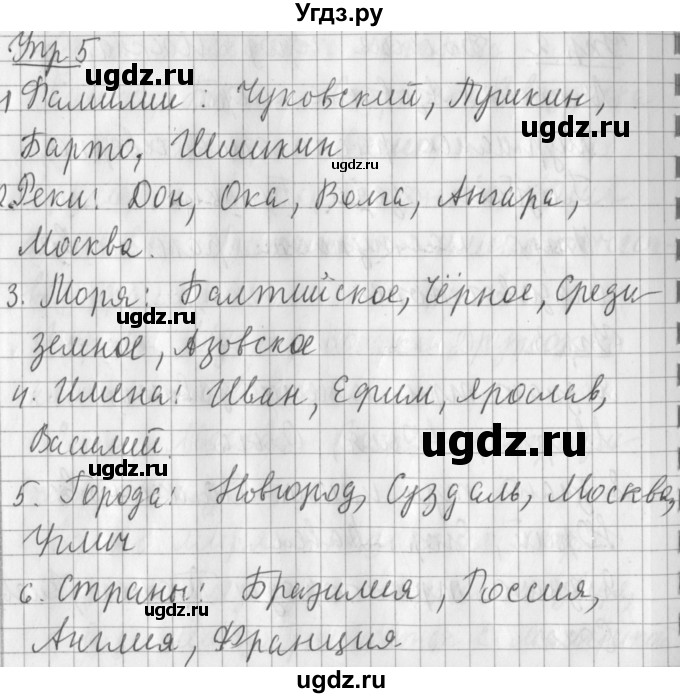 Угдз.ру
Упр 5
1 Фамилии: Чуковский, Пушкин,
Барто, Шишкин
2. Реки: Дон, Ока, Волга, Ангара,
Москва.
3. Моря: Балтийское, Чёрное, Среди-
земное, Азовское
4. Имена: Иван, Ефим, Ярослав,
Василий.
5. Города: Новгород, Суздаль, Москва,
Углич
6. Страны: Бразилия, Россия,
Англия, Франция
ugdz.ru
ugdz.ru
ugdz.ru
ugdz.ru
ugdz.ru
ugdz.ru
ugdz.ru
ugdz.ru
ugdz.ru
ugdz.ru
ugdz.ru